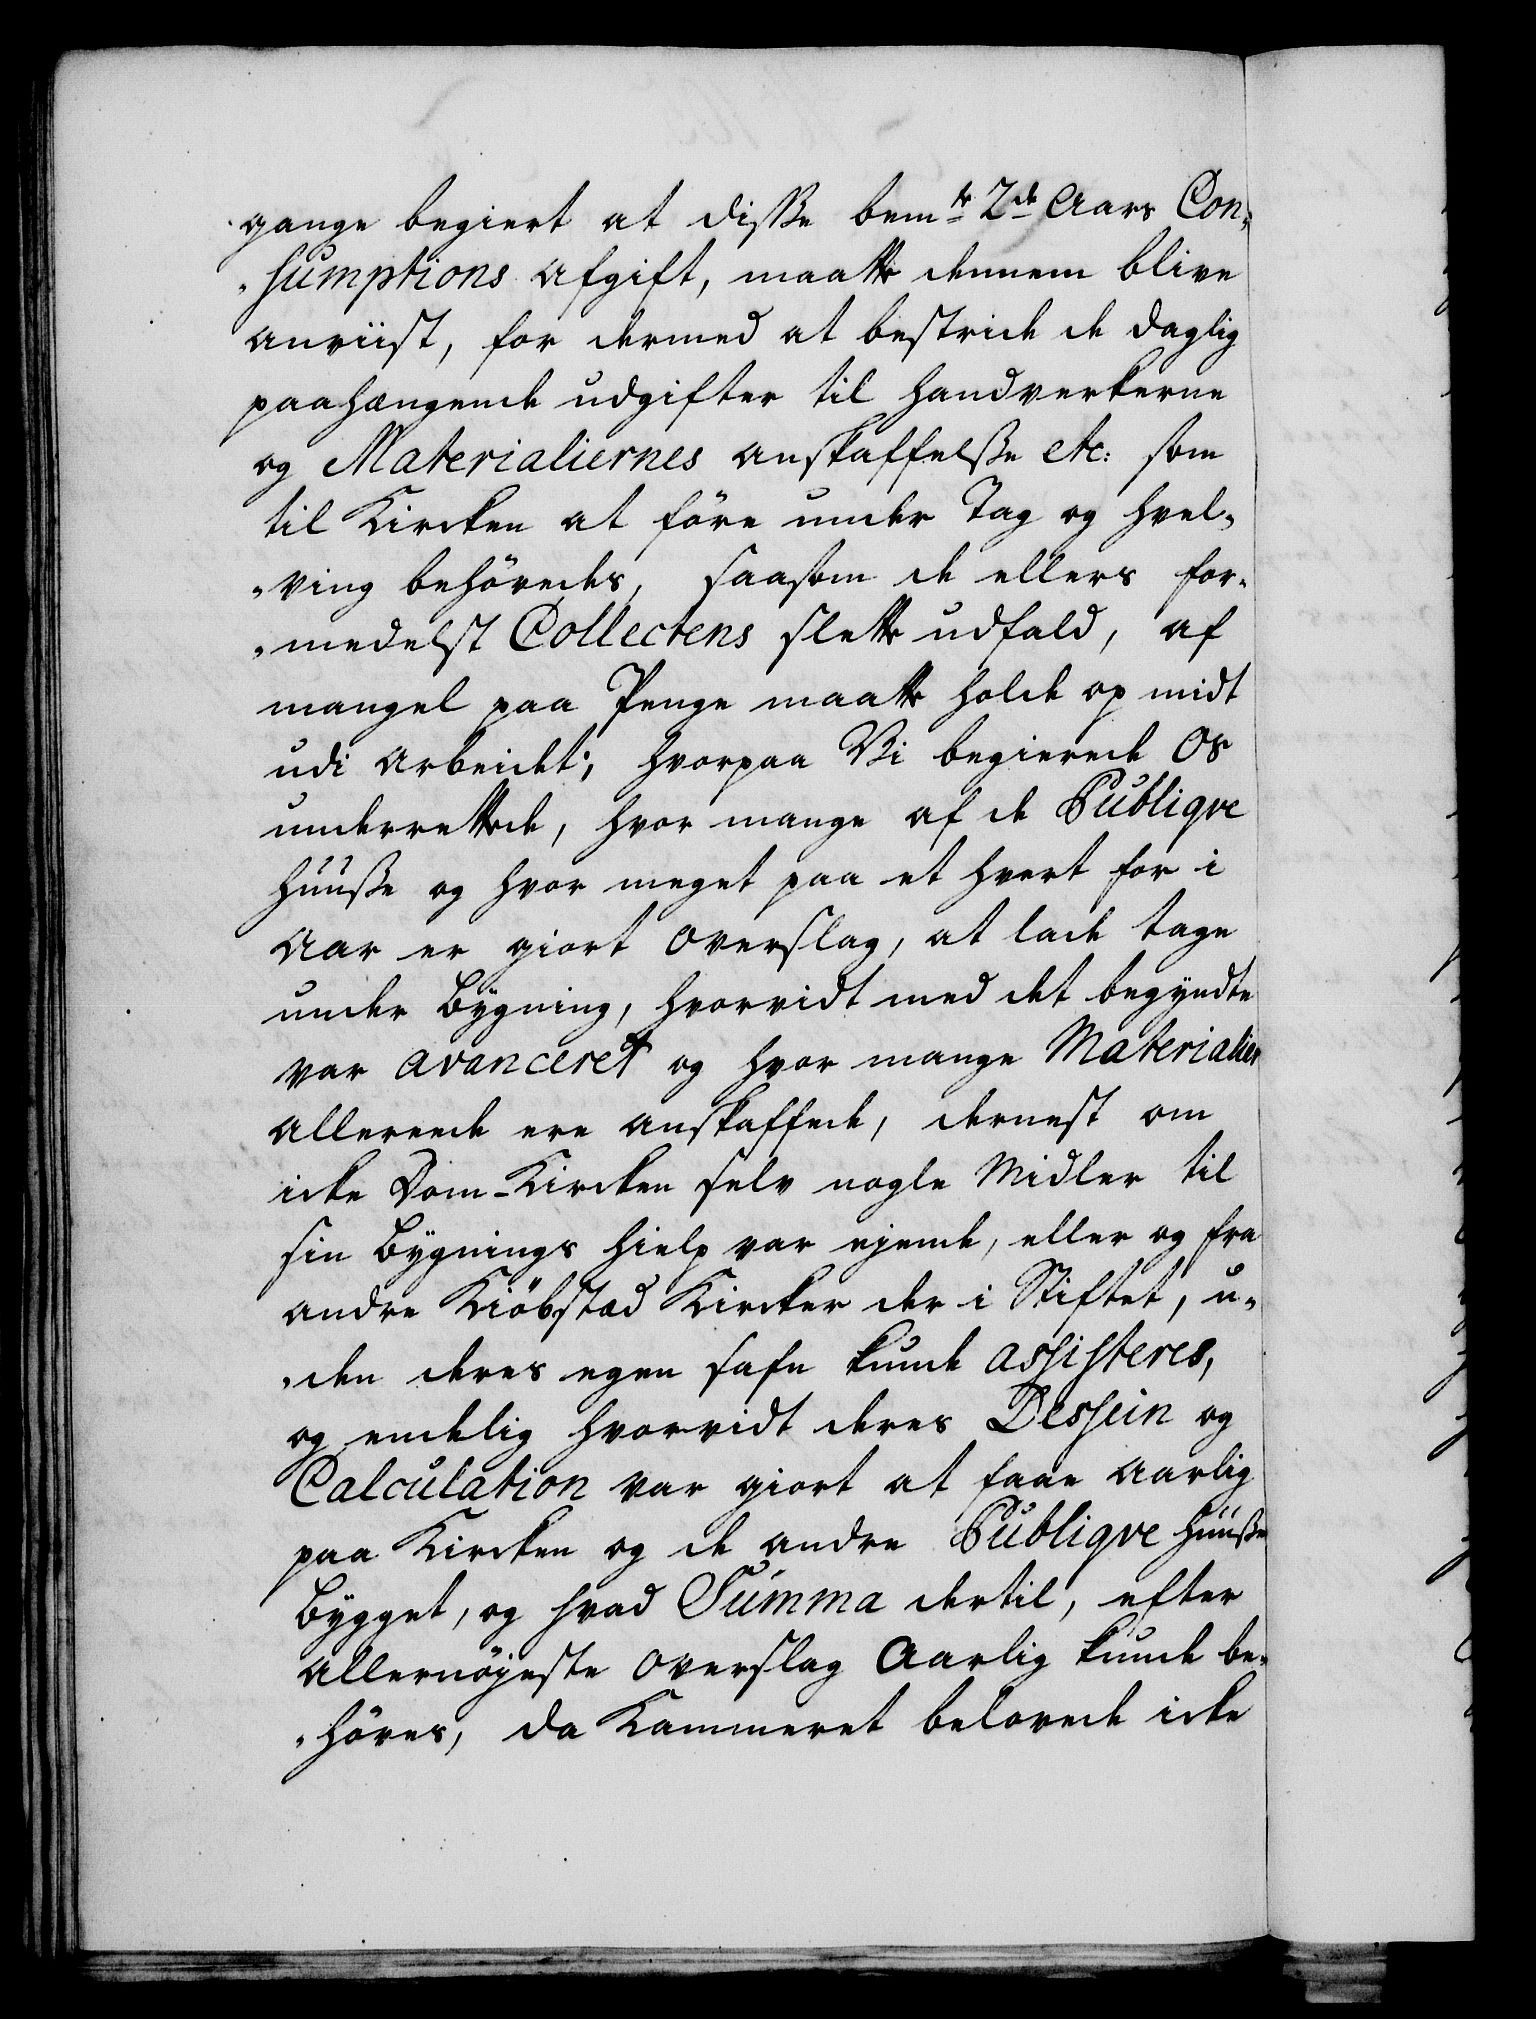 gange begiert at disse bem.te 2de Aars Con-
-sumptions Afgift, maatte dennem blive
anviist, for dermed at bestride de daglig
paahængende udgifter til Handverkerne
og Materialiernes anskaffelsse etc: som
til Kircken at före under Tag og Hvel-
-ving behövedes, saasom de ellers for-
-medelst Collectens slette udfald, af
mangel paa Penge maatte holde op midt
udi Arbeidet; hvorpaa Vi begierede Os
underrettede, hvor mange af de Publiqve
Huuse og hvor meget paa et hvert for i
Aar er giort Overslag, at lade tage
under Bÿgning, hvorvidt med det begyndte
var avanceret og hvor mange Materialier
allereede ere anskaffede, dernest om
icke Dom-Kircken selv nogle Midler til
sin Bÿgnings Hielp var ejende, eller og fra
andre Kiöbstæd Kircker der i Stiftet, u-
-den deres egen Safn kunde assisteres,
og endelig hvorvidt deres Dessein og
Calculation var giort at faae Aarlig
paa Kircken og de andre Publiqve Huuse
Bÿgget, og hvad Summa dertil, efter
allernöjeste Overslag Aarlig kunde be-
-höves, da Kammeret belovede icke